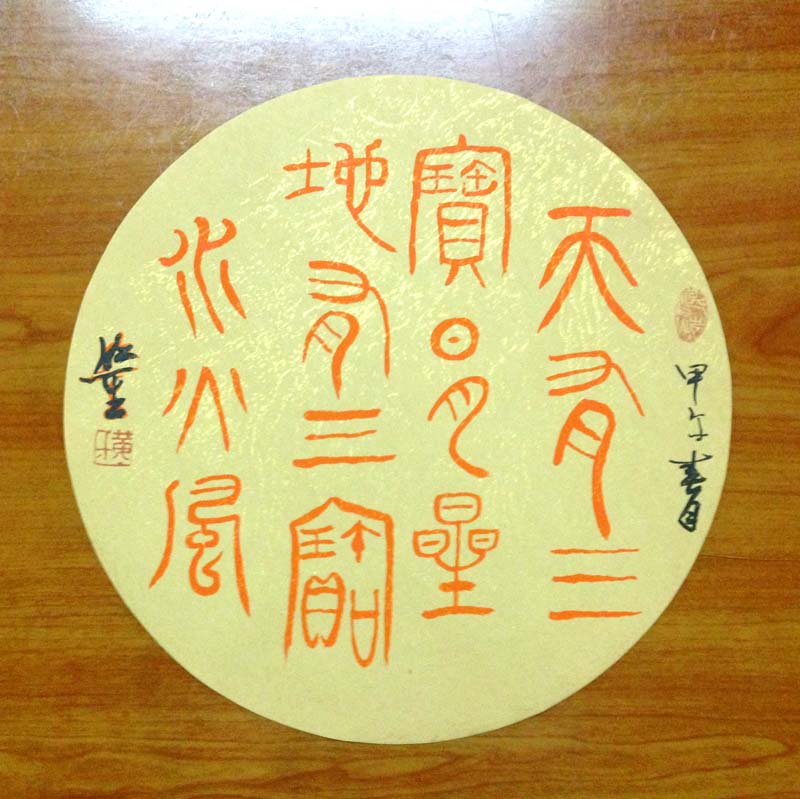 甲午春月
天有三
寶日月星
地有三寶
水火風